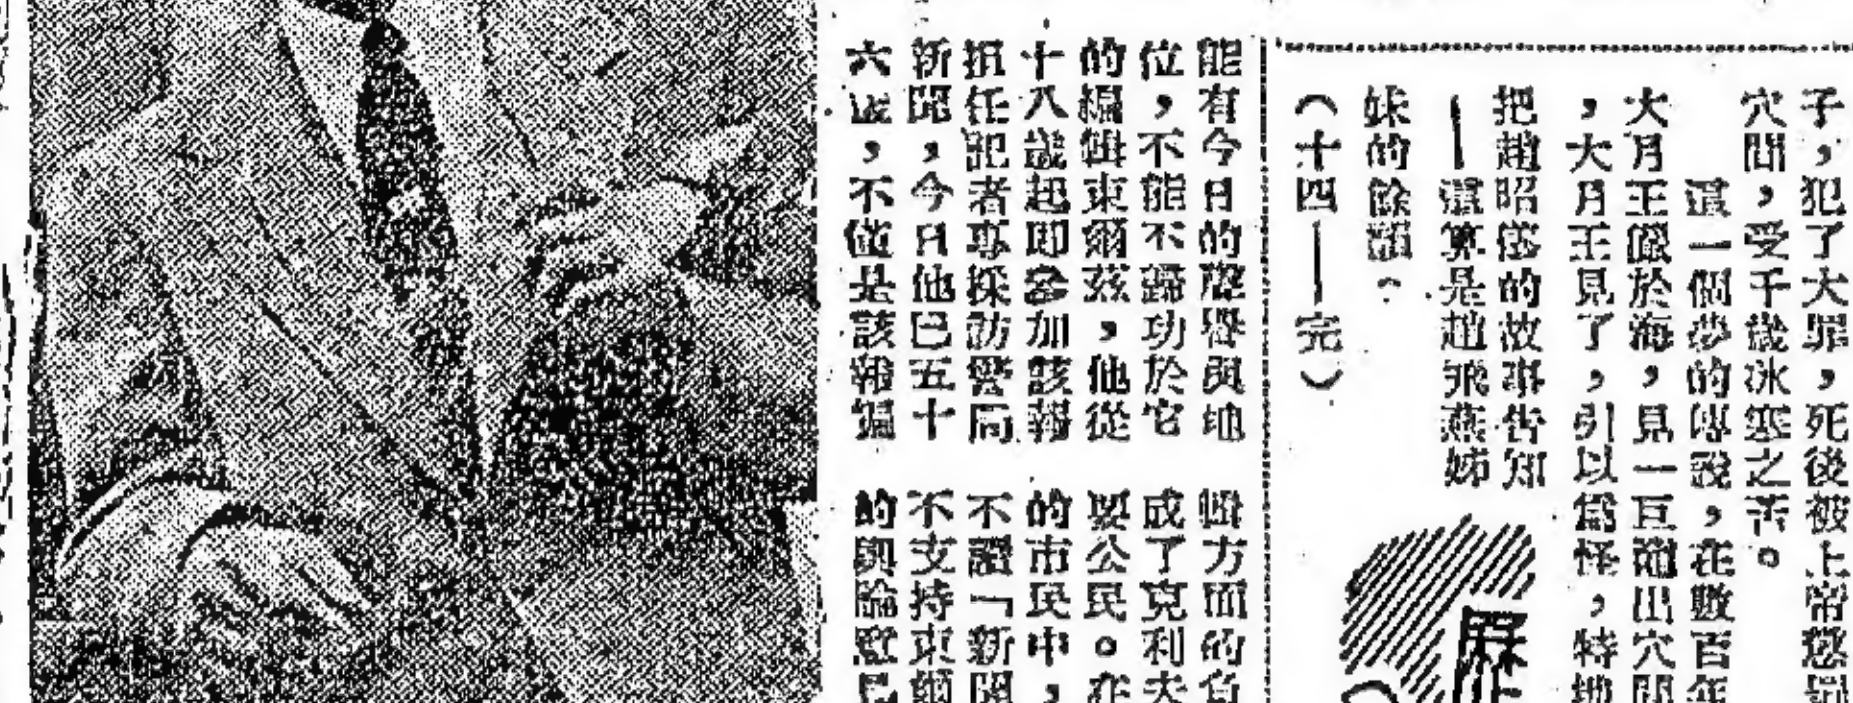 子，犯了大罪，死後被上帝懲
穴間，受千歲冰寒之苦。
這一個夢的傳說，在數百年
大月王獵於海，見一巨龍出穴間
，大月王見了，引以爲怪，特地
把趙昭儀的故事告知
—這算是趙飛燕姊
妹的餘韻。
（十四—完）
能有今日的聲譽與地
位，不能不歸功於它
的編輯東爾茲，他從
十八歲起即參加該報
担任記者專採訪警局
新聞，今日他已五十
六歲，不僅是該報編
輯方面的負
成了克利夫
要公民。在
的市民中，
不讀「新聞
不支持東爾
的輿論意見